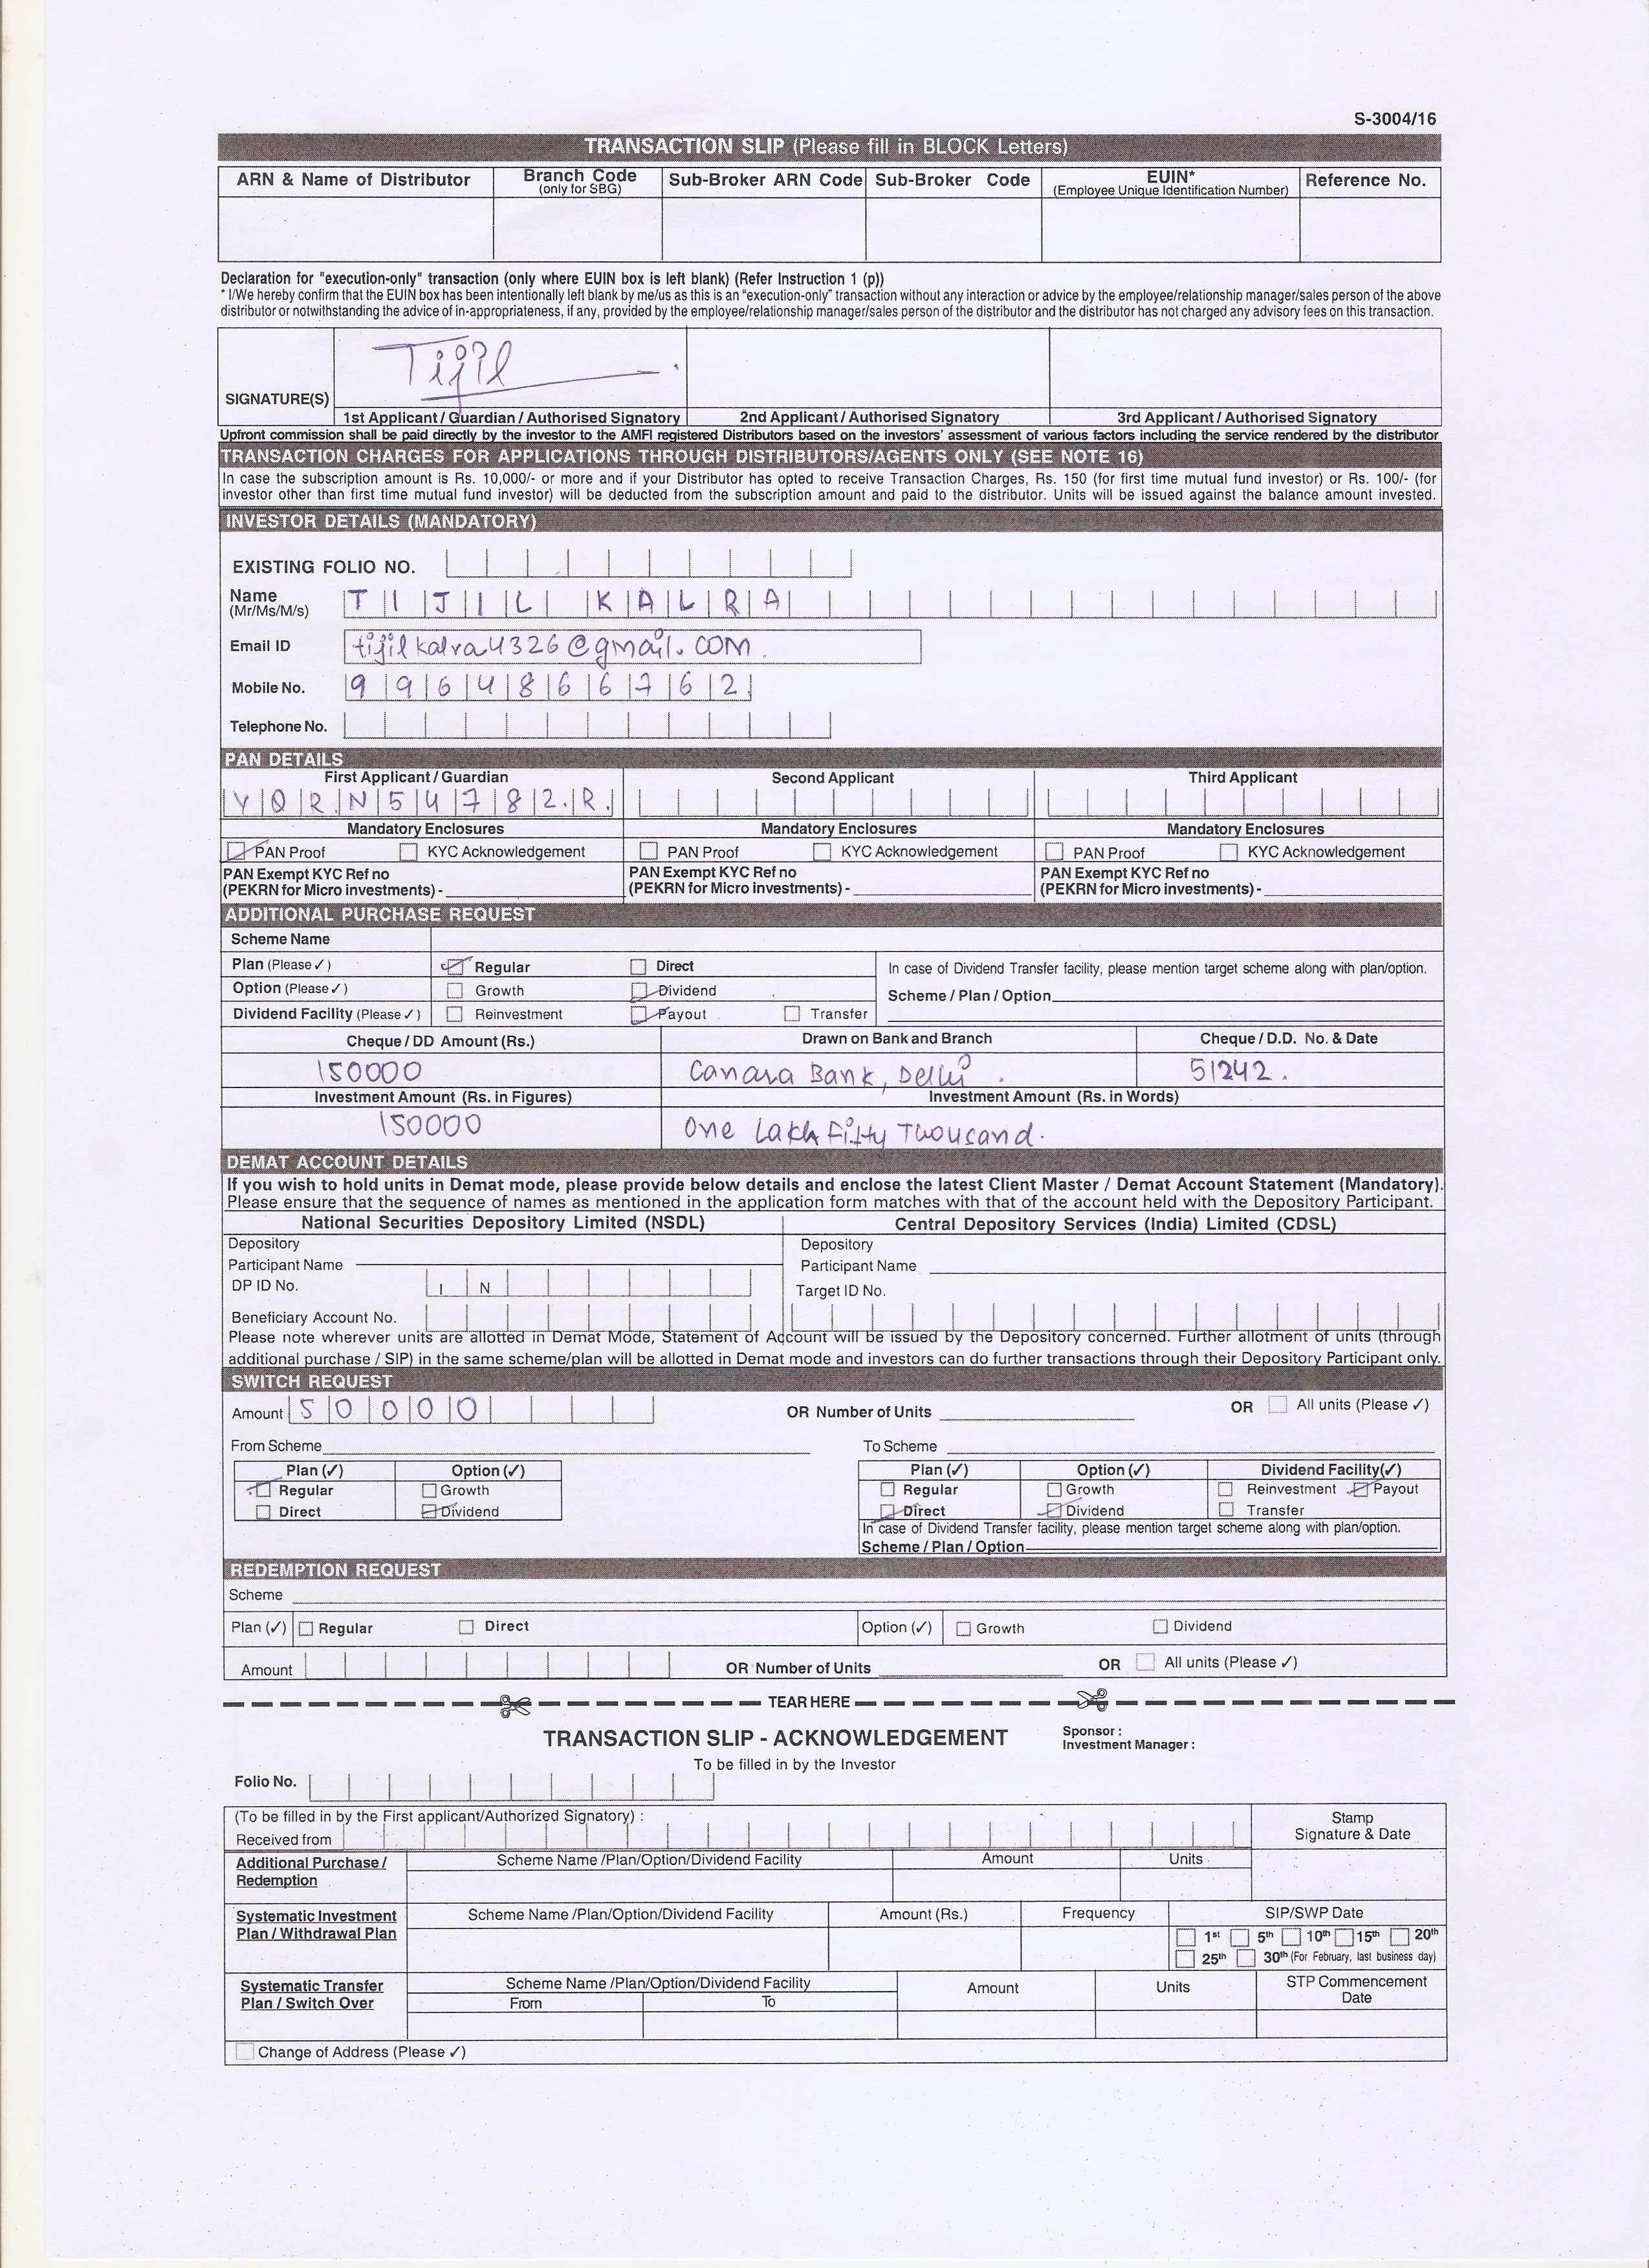 S-3004/16
TRANSACTION SLIP (Please fill in BLOCK Letters)
ARN & Name of Distributor Branch Code (only for SBG) Sub-Broker ARN Code Sub-Broker Code EUIN* (Employee Unique Identification Number) Reference No.
Declaration for "execution-only" transaction (only where EUIN box is left blank) (Refer Instruction 1 (p))
* I/We hereby confirm that the EUIN box has been intentionally left blank by me/us as this is an "execution-only" transaction without any interaction or advice by the employee/relationship manager/sales person of the above
distributor or notwithstanding the advice of in-appropriateness, if any, provided by the employee/relationship manager/sales person of the distributor and the distributor has not charged any advisory fees on this transaction.
Tijil
SIGNATURE(S)
1st Applicant / Guardian / Authorised Signatory 2nd Applicant / Authorised Signatory 3rd Applicant / Authorised Signatory
Upfront commission shall be paid directly by the investor to the AMFI registered Distributors based on the investors' assessment of various factors including the service rendered by the distributor
TRANSACTION CHARGES FOR APPLICATIONS THROUGH DISTRIBUTORS/AGENTS ONLY (SEE NOTE 16)
In case the subscription amount is Rs. 10,000/- or more and if your Distributor has opted to receive Transaction Charges, Rs. 150 (for first time mutual fund investor) or Rs. 100/- (for
investor other than first time mutual fund investor) will be deducted from the subscription amount and paid to the distributor. Units will be issued against the balance amount invested.
INVESTOR DETAILS (MANDATORY)
EXISTING FOLIO NO.
Name (Mr/Ms/M/s) TIJIL KALRA
Email ID tijilkalra4326@gmail.com.
Mobile No. 9964866762
Telephone No.
PAN DETAILS
First Applicant / Guardian Second Applicant Third Applicant
YQRN54782.R.
Mandatory Enclosures Mandatory Enclosures Mandatory Enclosures
PAN Proof KYC Acknowledgement PAN Proof KYC Acknowledgement PAN Proof KYC Acknowledgement
PAN Exempt KYC Ref no PAN Exempt KYC Ref no PAN Exempt KYC Ref no
(PEKRN for Micro investments) - (PEKRN for Micro investments) - (PEKRN for Micro investments) -
ADDITIONAL PURCHASE REQUEST
Scheme Name
Plan (Please ✓) Regular Direct In case of Dividend Transfer facility, please mention target scheme along with plan/option.
Option (Please ✓) Growth Dividend Scheme / Plan / Option
Dividend Facility (Please ✓) Reinvestment Payout Transfer
Cheque / DD Amount (Rs.) Drawn on Bank and Branch Cheque / D.D. No. & Date
150000 Canara Bank, Delhi. 51242.
Investment Amount (Rs. in Figures) Investment Amount (Rs. in Words)
150000 One Lakh Fifty Thousand.
DEMAT ACCOUNT DETAILS
If you wish to hold units in Demat mode, please provide below details and enclose the latest Client Master / Demat Account Statement (Mandatory).
Please ensure that the sequence of names as mentioned in the application form matches with that of the account held with the Depository Participant.
National Securities Depository Limited (NSDL) Central Depository Services (India) Limited (CDSL)
Depository Depository
Participant Name Participant Name
DP ID No. I N Target ID No.
Beneficiary Account No.
Please note wherever units are allotted in Demat Mode, Statement of Account will be issued by the Depository concerned. Further allotment of units (through
additional purchase / SIP) in the same scheme/plan will be allotted in Demat mode and investors can do further transactions through their Depository Participant only.
SWITCH REQUEST
Amount 50000 OR Number of Units OR All units (Please ✓)
From Scheme To Scheme
Plan (✓) Option (✓) Plan (✓) Option (✓) Dividend Facility(✓)
Regular Growth Regular Growth Reinvestment Payout
Direct Dividend Direct Dividend Transfer
In case of Dividend Transfer facility, please mention target scheme along with plan/option.
Scheme / Plan / Option
REDEMPTION REQUEST
Scheme
Plan (✓) Regular Direct Option (✓) Growth Dividend
Amount OR Number of Units OR All units (Please ✓)
TEAR HERE
TRANSACTION SLIP - ACKNOWLEDGEMENT Sponsor :
Investment Manager :
To be filled in by the Investor
Folio No.
(To be filled in by the First applicant/Authorized Signatory) : Stamp
Received from Signature & Date
Additional Purchase / Scheme Name /Plan/Option/Dividend Facility Amount Units
Redemption
Systematic Investment Scheme Name /Plan/Option/Dividend Facility Amount (Rs.) Frequency SIP/SWP Date
Plan / Withdrawal Plan 1st 5th 10th 15th 20th
25th 30th (For February, last business day)
Systematic Transfer Scheme Name /Plan/Option/Dividend Facility Amount Units STP Commencement
Plan / Switch Over From To Date
Change of Address (Please ✓)